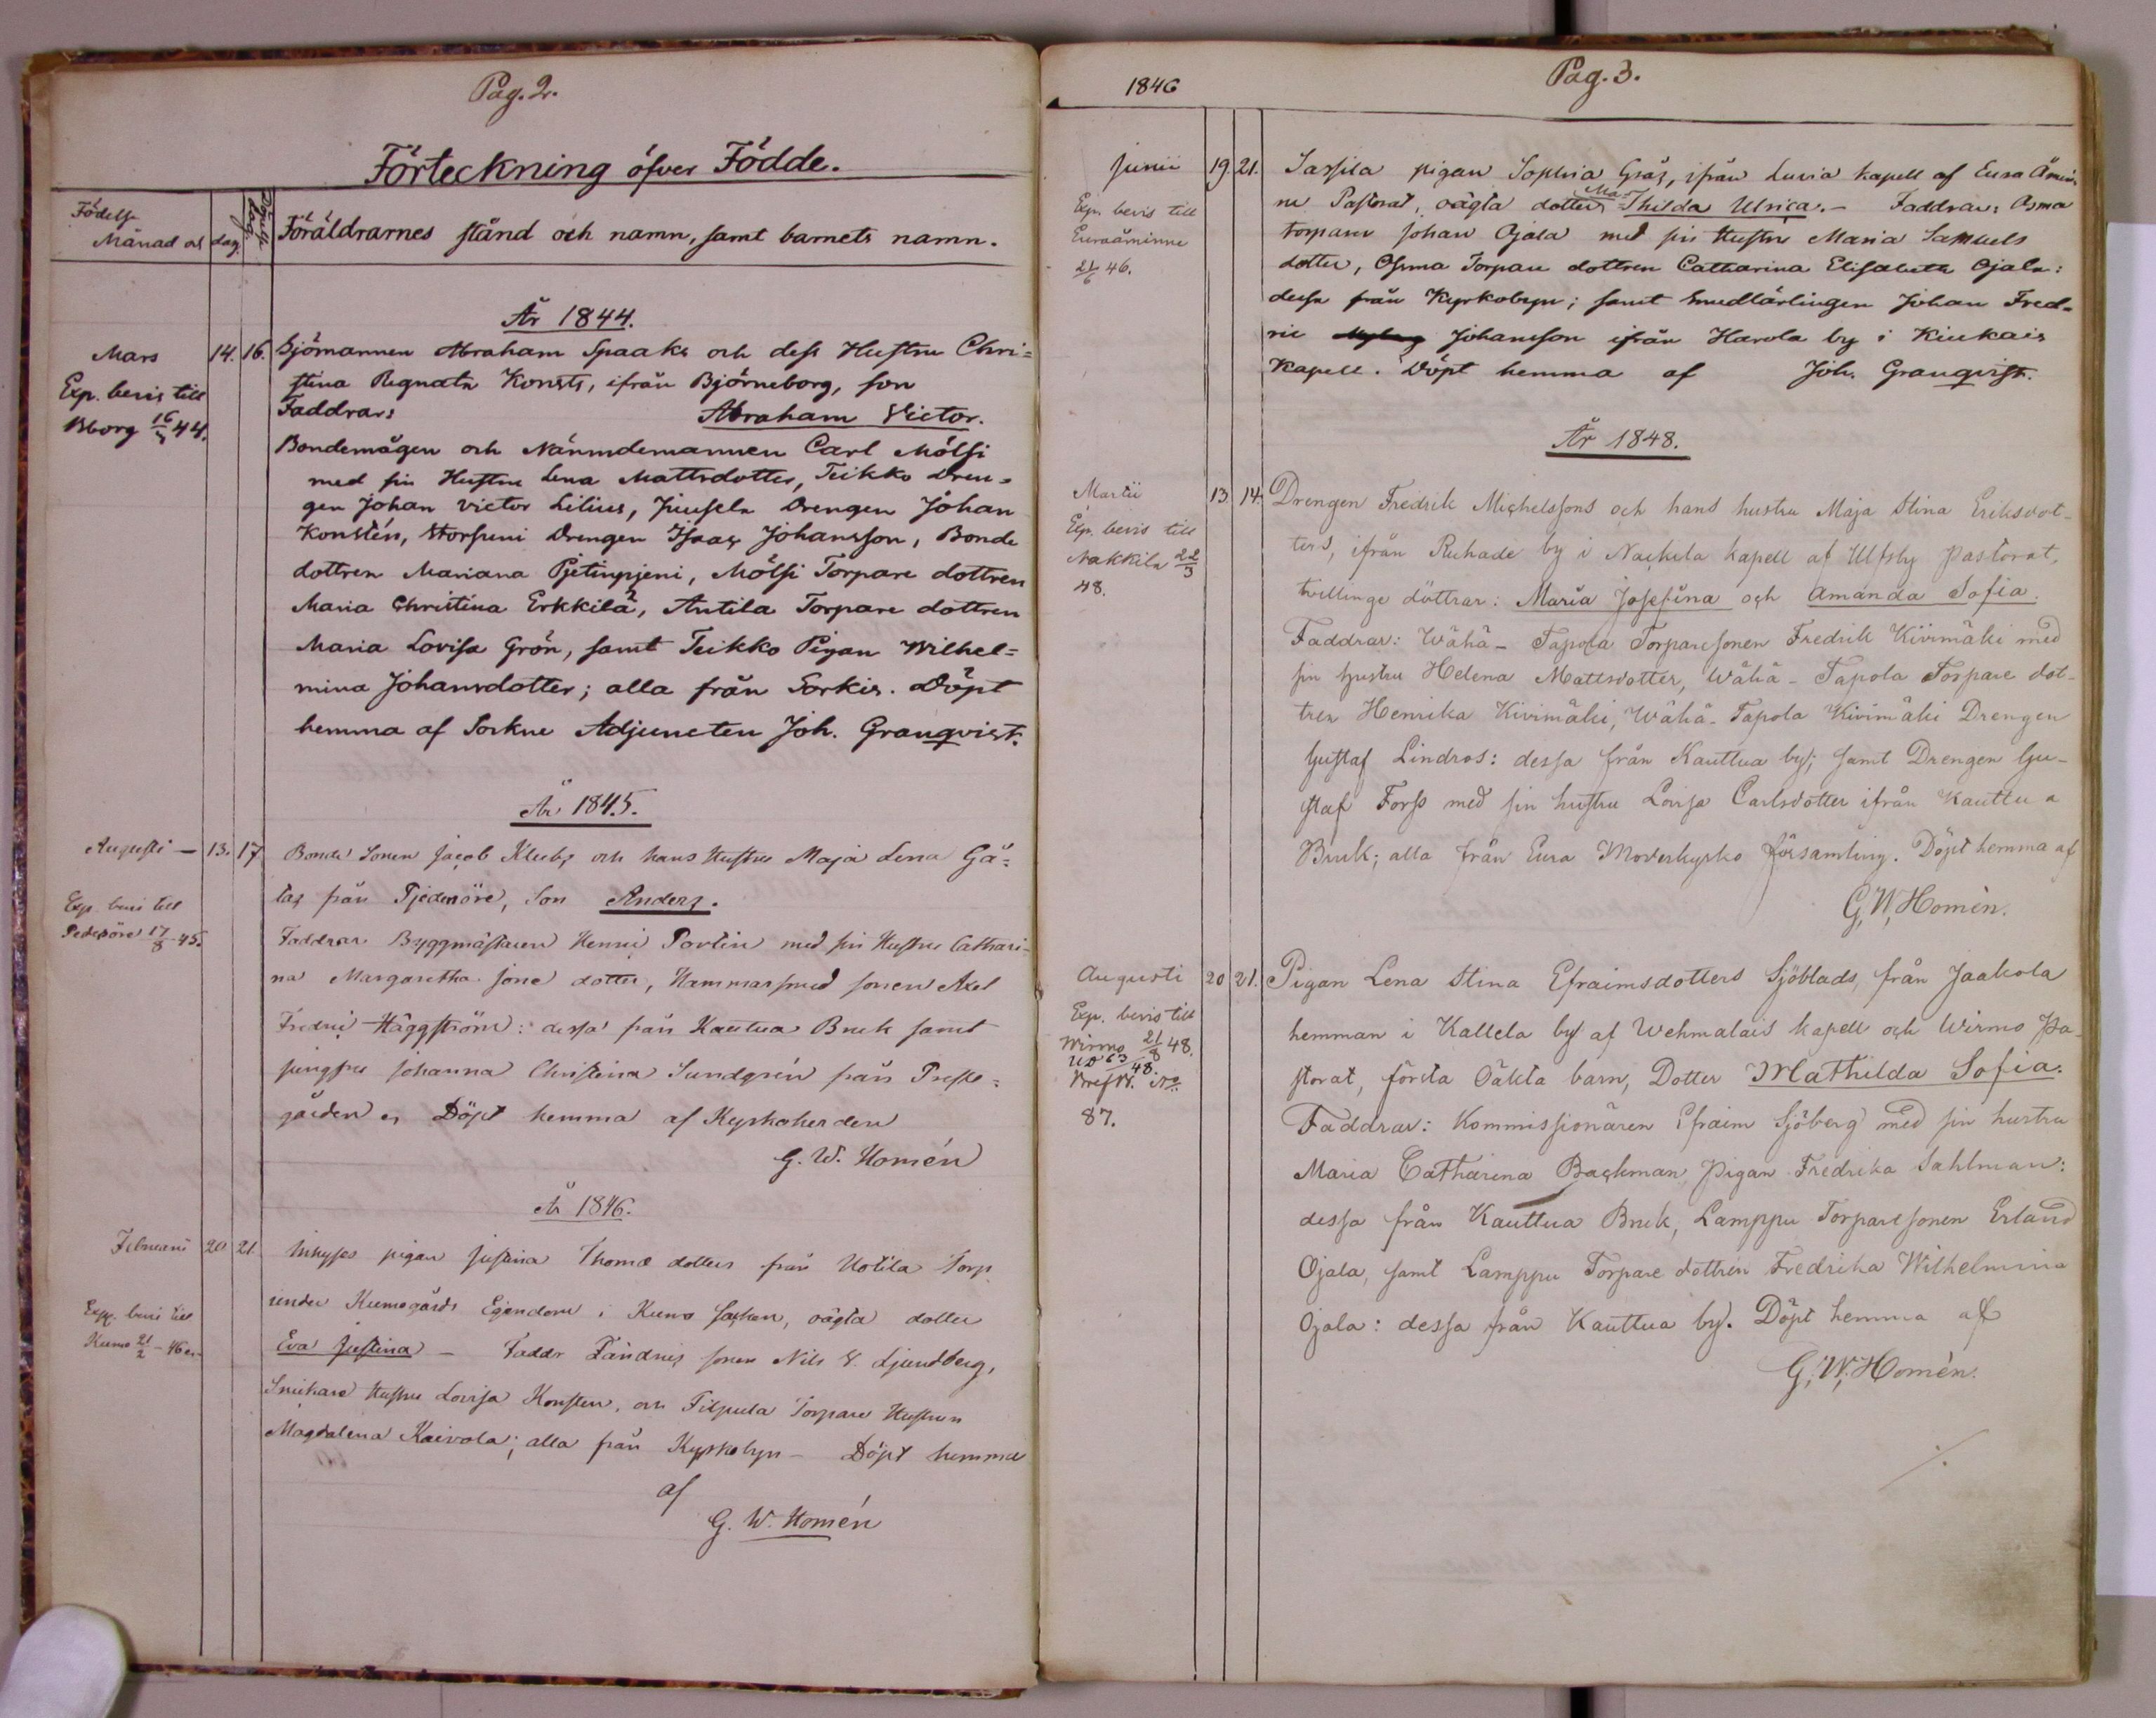 Pag. 2.
Förteckning öfver Födde.
Födelse
Månad och dag.
Föräldrarnes stånd och namn, samt barnets namn.
År 1844.
Mars 14. 16. Sjömannen Abraham Spaaks och dess Hustru Chri=
stina Regnata Konsts, ifrån Björneborg, son
Exp. bevis till
Bborg 16/3 44.
Faddrar: Abraham Victor.
Bondemågen och Nämndemannen Carl Mölsi
med sin Hustru Lena Mattsdotter, Teikko Dren=
gen Johan Victor Lilius, Juusela Drengen Johan
Konstén, Storsuni Drengen Isaac Johansson, Bonde
dottren Mariana Pjetinpjeni, Mölsi Torpare dottren
Maria Christina Erkkilä, Antila Torpare dottren
Maria Lovisa Grön, samt Teikko Pigan Wilhel=
mina Johansdotter; alla från Sorkis. Döpt
hemma af Sockne Adjuncten Joh. Granqvist.
År 1845.
Augusti — 13. 17. Bonde Sonen Jacob Klubs och hans Hustru Maja Lena Gä=
las från Pjedersöre, Son Anders.
Exp. bevis till
Pedersöre 17/8 45.
Faddrar Byggmästaren Henric Portin med sin Hustru Cathari=
na Margaretha Jone dotter, Hammarsmed sonen Axel
Fredric Häggström: dessa från Kautua Bruk samt
jungfru Johanna Christina Sundgrén från Preste=
gården. Döpt hemma af Kyrkoherden
G. W. Homén
År 1846.
Februarii 20 21. Inhyses pigan Justina Thomæ dotters från Uotila Torp
under Kumogårds Egendom i Kumo Socken, oägta dotter
Exp. bevis till
Kumo 21/2 - 46.
Eva Justina — Faddr Fändrics sonen Nils V. Ljundberg,
Snickare Hustru Lovisa Konsten, och Filpula Torpare Hustrun
Magdalena Kaivola; alla från Kyrkobyn — Döpt hemma
af
G. W. Homén
Pag. 3.
1846
Junii 19. 21. Sassila pigan Sophia Gräs, ifrån Luvia kapell af Eura Åmin=
ne Pastorat, oägta dotter Ma=thilda Ulrica. — Faddrar: Osma
Exp. bevis till
Euraåminne
21/6 46.
torparen Johan Ojala med sin Hustru Maria Samuels
dotter, Osma Torpare dottren Catharina Elisabeth Ojala:
dessa från Kyrkobyn; samt Smedlärlingen Johan Fred=
ric Johansson ifrån Harola by i Kiukais
Kapell. Döpt hemma af Joh. Granqvist.
År 1848.
Martii 13. 14. Drengen Fredrik Michelssons och hans hustru Maja Stina Eriksdot-
ters, ifrån Ruhade by i Nackila kapell af Ulfsby pastorat,
Exp. bevis till
Nakkila 22/3
48.
tvillinge döttrar: Maria Josefina och Amanda Sofia.
Faddrar: Wähä-Tapola Torparesonen Fredrik Kivimäki med
sin hustru Helena Mattsdotter, Wähä-Tapola Torpare dot-
tren Henrika Kivimäki, Wähä-Tapola Kivimäki Drengen
Gustaf Lindros: dessa från Kauttua by; samt Drengen Gu-
staf Forss med sin hustru Lovisa Carlsdotter ifrån Kauttua
Bruk; alla från Eura Moderkyrko församling. Döpt hemma af
G. W. Homén.
Augusti 20 21. Pigan Lena Stina Efraimsdotters Sjöblads, från Jaakola
hemman i Kallela by af Wehmalais kapell och Wirmo Pa-
Exp. bevis till
Wirmo 21/8 48.
storat, första Oäkta barn, Dotter Mathilda Sofia.
87.
Faddrar: Kommissionären Efraim Sjöberg med sin hustru
Maria Catharina Backman, Pigan Fredrika Sahlman:
dessa från Kauttua Bruk, Lamppu Torparesonen Erland
Ojala, samt Lamppu Torpare dottren Fredrika Wilhelmina
Ojala: dessa från Kauttua by. Döpt hemma af
G. W. Homén.